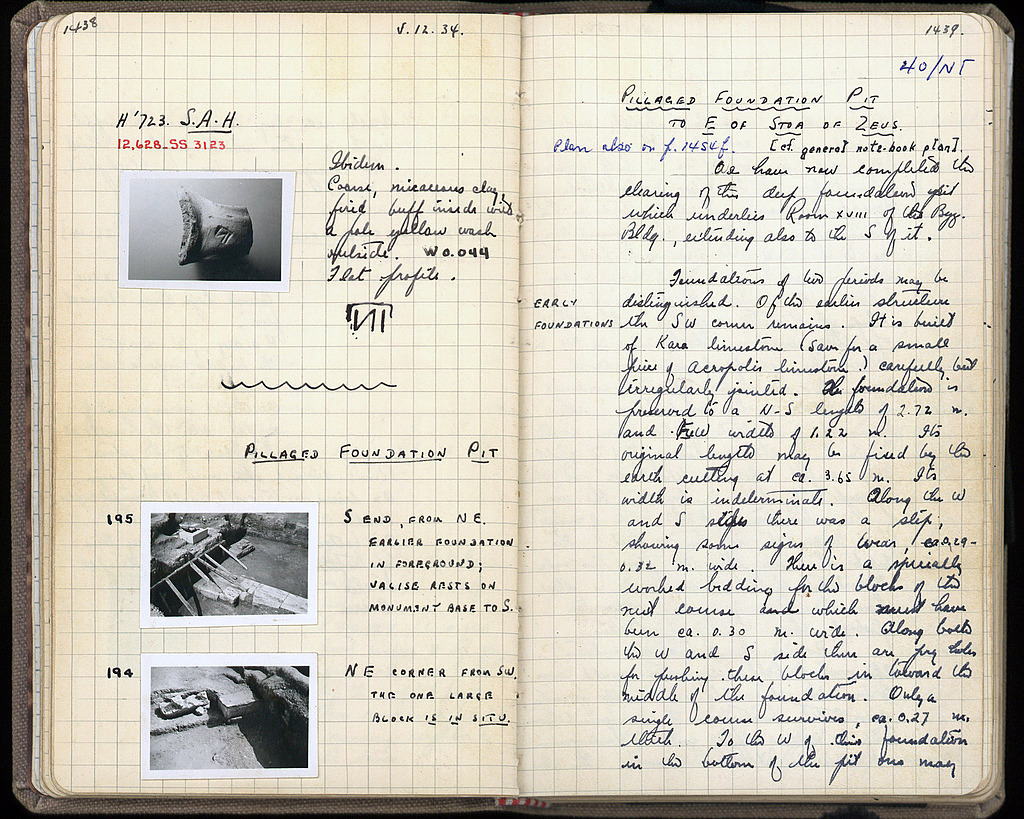 1438
5.12.34.
H'723. S.A.H.
12,628-SS 3123
Ibidem.
Coarse, micaceous clay,
fired buff inside with
a pale yellow wash
outside. W0.044
Flat profile.
PILLAGED FOUNDATION PIT
195
S END, FROM NE.
EARLIER FOUNDATION
IN FOREGROUND;
VALISE RESTS ON
MONUMENT BASE TO S.
194
NE CORNER FROM SW.
THE ONE LARGE
BLOCK IS IN SITU.
1439.
40/ΝΓ
PILLAGED FOUNDATION PIT
TO E OF STOA OF ZEUS.
Plan also on p. 1454f. [cf. general note-book plan].
We have now completed the
clearing of the deep foundation pit
which underlies Room XVIII of the Byz.
Bldg., extending also to the S of it.
Foundations of two periods may be
EARLY
FOUNDATIONS
distinguished. Of the earlier structure
the SW corner remains. It is built
of Kara limestone (save for a small
piece of Acropolis limestone) carefully but
irregularly jointed. The foundation is
preserved to a N-S length of 2.72 m.
and E-W width of 1.22 m. Its
original length may be fixed by the
earth cutting at ca. 3.65 m. Its
width is indeterminate. Along the W
and S sides there was a step,
showing some signs of wear, ca. 0.29-
0.32 m. wide. There is a specially
worked bedding for the blocks of the
next course which must have
been ca. 0.30 m. wide. Along both
the W and S side there are pry holes
for pushing these blocks in toward the
middle of the foundation. Only a
single course survives, ca. 0.27 m.
thick. To the W of this foundation
in the bottom of the pit one may